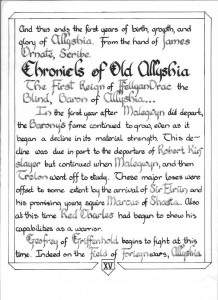 And thus ends the first years of birth, growth, and
glory of Allyshia. From the hand of James
Ornate, Scribe.
Chronicls of Old Allyshia
The First Reign of
the
Blind, Baron of Allyshia...
In the first year after did depart,
the Baronys fame continued to grow, even as it
began a decline in its material strength. This de-
cline was due in part to the departure of Robert Kin
slayer but continued when and then
went off to study. These major losses were
offset to some extent by the arrival of Sir
and his promising young squire Marcus of Shasta. Also
at this time Red Charles had begun to show his
capabilities as a warrior.
Geofrey of Griffenhold begins to fight at this
time. Indeed on the field of foriegn wars, Allyshia
XV